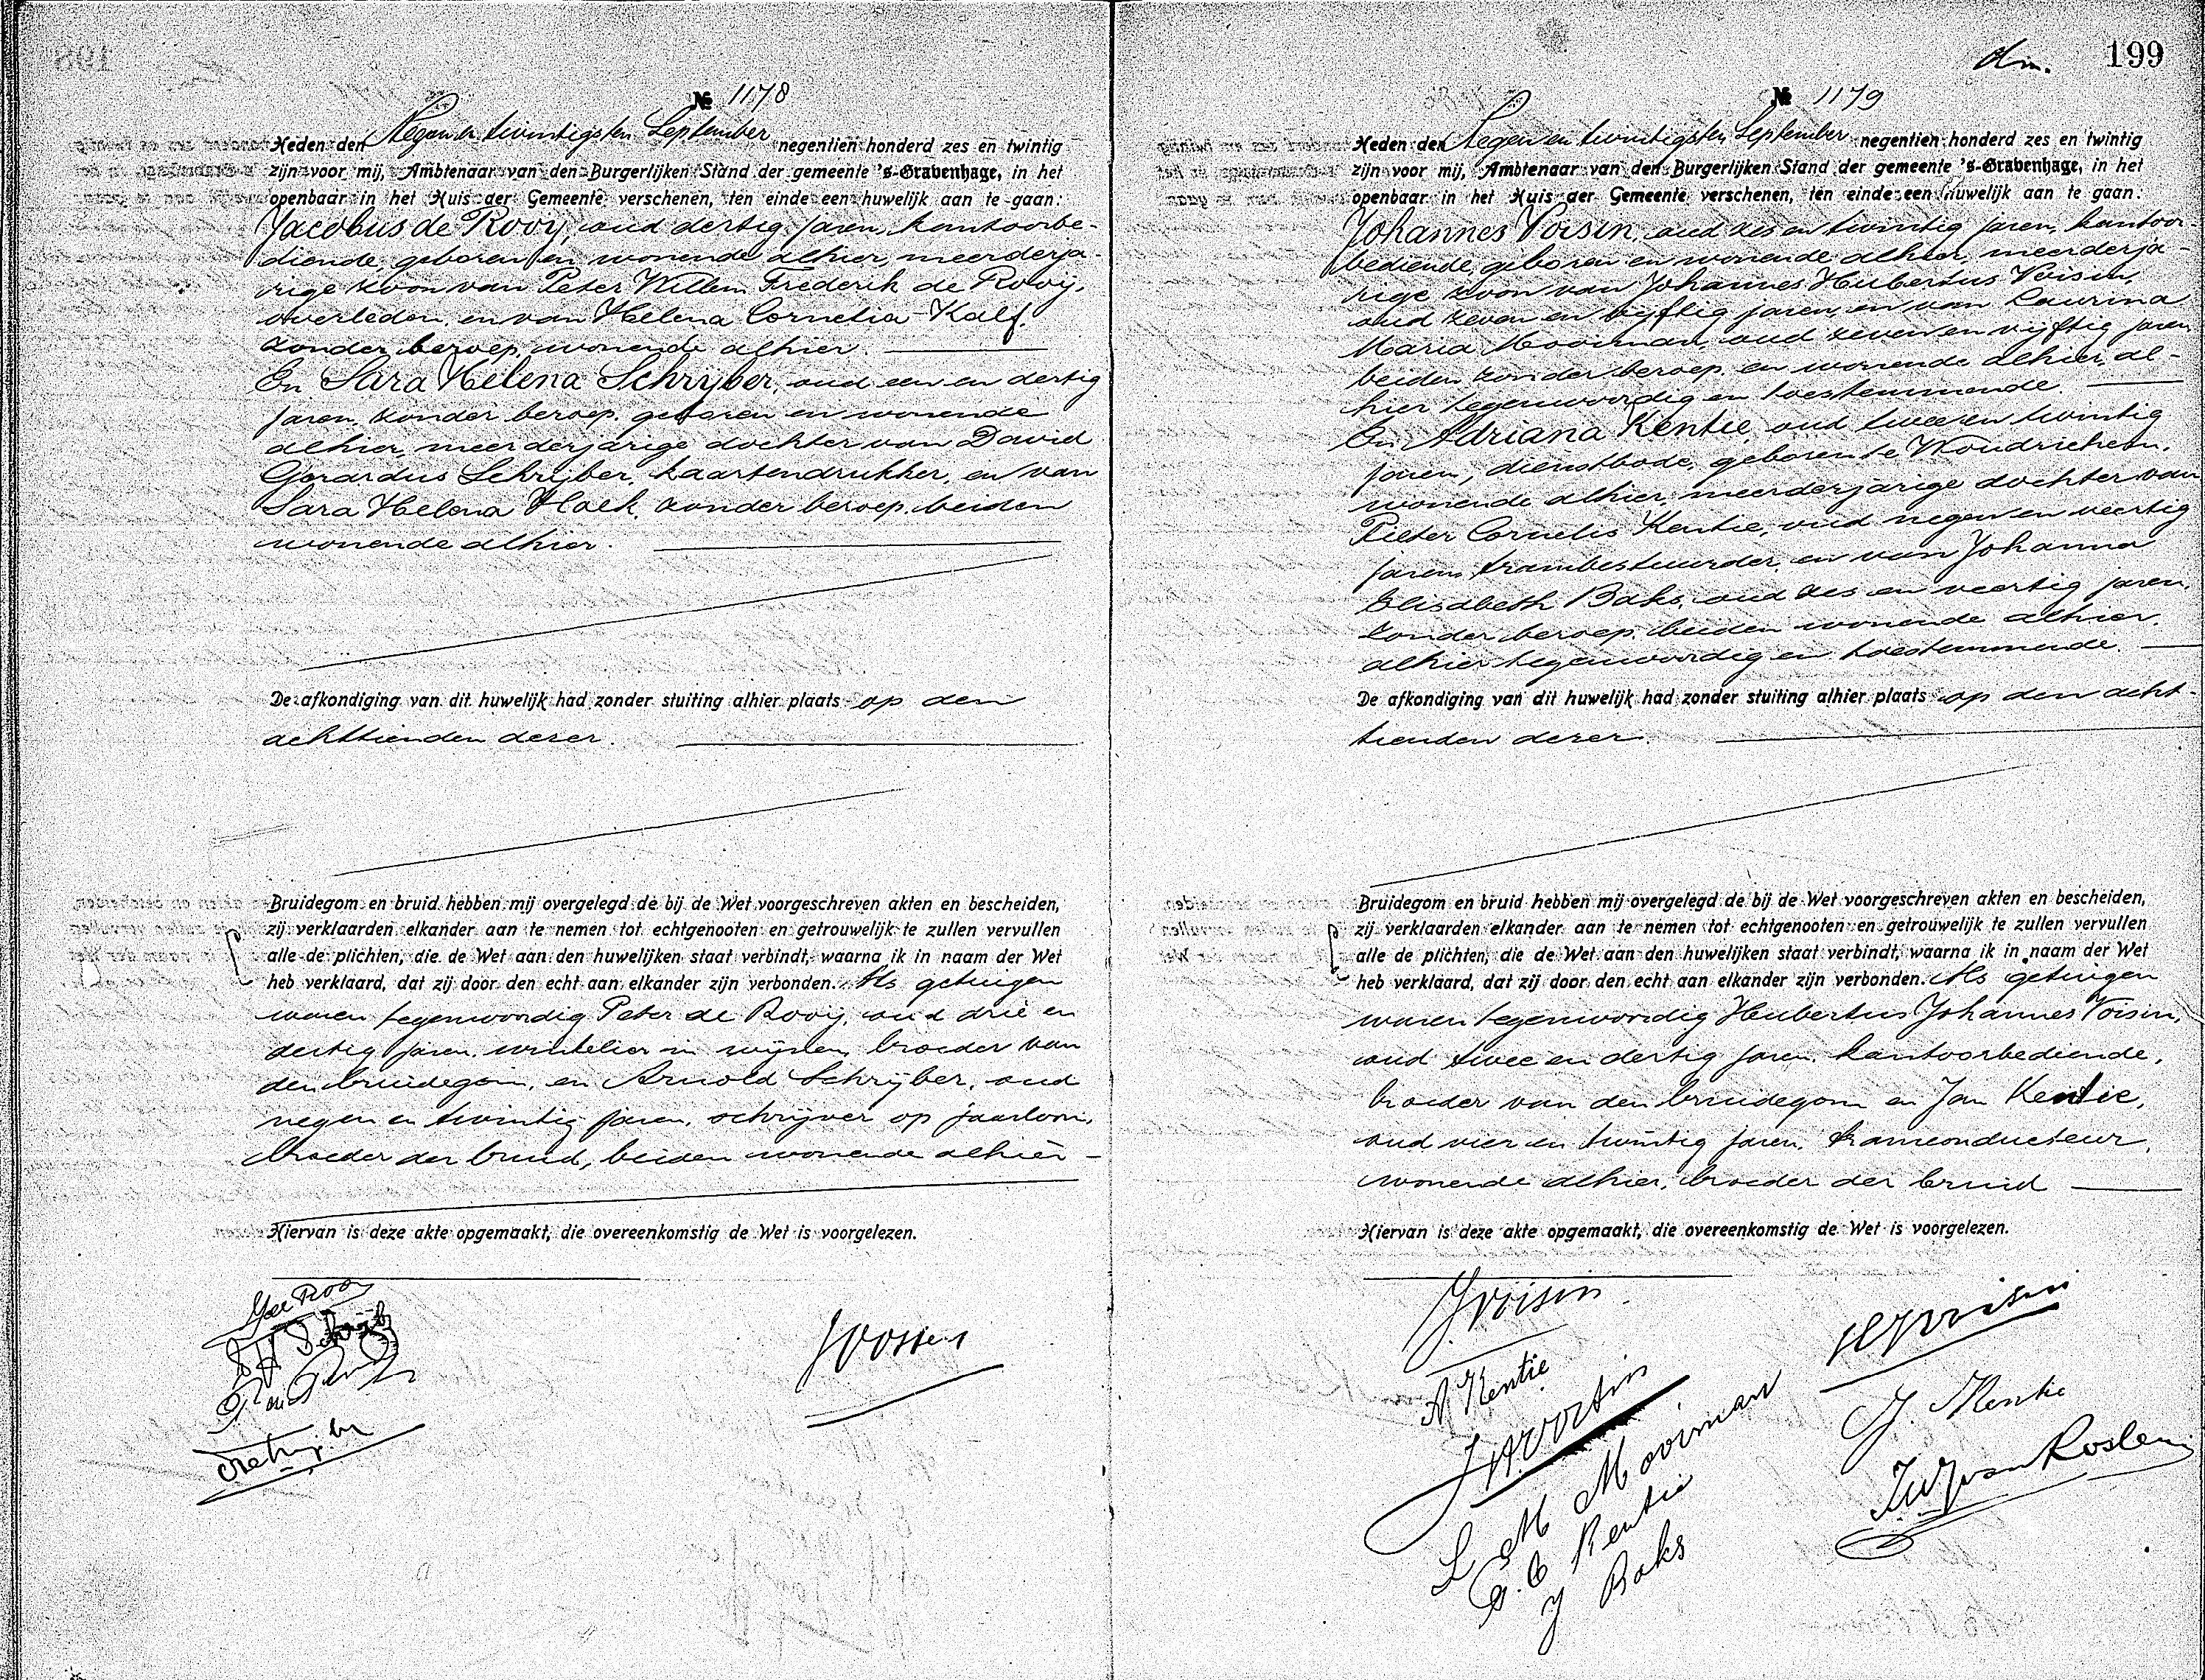 № 1178
Heden den Negen en twintigsten September negentien honderd zes en twintig
zijn voor mij, Ambtenaar van den Burgerlijken Stand der gemeente 's-Gravenhage, in het
openbaar in het Huis der Gemeente verschenen, ten einde een huwelijk aan te gaan:
Jacobus de Rooij, oud dertig jaren, kantoorbe-
diende, geboren en wonende alhier, meerderja-
rige zoon van Peter Willem Frederik de Rooij,
overleden, en van Helena Cornelia Kalf,
zonder beroep, wonende alhier.
En Sara Helena Schrijber, oud een en dertig
jaren, zonder beroep, geboren en wonende
alhier, meerderjarige dochter van David
Gerardus Schrijber, kaartendrukker, en van
Sara Helena Hoek, zonder beroep, beiden
wonende alhier.
De afkondiging van dit huwelijk had zonder stuiting alhier plaats op den
achttienden dezer.
Bruidegom en bruid hebben mij overgelegd de bij de Wet voorgeschreven akten en bescheiden,
zij verklaarden elkander aan te nemen tot echtgenooten en getrouwelijk te zullen vervullen
alle de plichten, die de Wet aan den huwelijken staat verbindt, waarna ik in naam der Wet
heb verklaard, dat zij door den echt aan elkander zijn verbonden. Als getuigen
waren tegenwoordig Peter de Rooij, oud drie en
dertig jaren, winkelier in wijnen, broeder van
den bruidegom, en Arnold Schrijber, oud
negen en twintig jaren, schrijver op jaarloon,
broeder der bruid, beiden wonende alhier
Hiervan is deze akte opgemaakt, die overeenkomstig de Wet is voorgelezen.
JdeRooy
Schrijber
dm. 199
№ 1179
Heden den Negen en twintigsten September negentien honderd zes en twintig
zijn voor mij, Ambtenaar van den Burgerlijken Stand der gemeente 's-Gravenhage, in het
openbaar in het Huis der Gemeente verschenen, ten einde een huwelijk aan te gaan:
Johannes Voisin, oud zes en twintig jaren, kantoor-
bediende, geboren en wonende alhier, meerderja-
rige zoon van Johannes Hubertus Voisin,
oud zeven en vijftig jaren, en van Laurina
Maria Mooiman, oud zeven en vijftig jaren,
beiden zonder beroep, en wonende alhier, al-
hier tegenwoordig en toestemmende.
En Adriana Kentie, oud twee en twintig
jaren, dienstbode, geboren te Woudrichem,
wonende alhier, meerderjarige dochter van
Pieter Cornelis Kentie, oud negen en veertig
jaren, trambestuurder, en van Johanna
Elisabeth Baks, oud zes en veertig jaren,
zonder beroep, beiden wonende alhier,
alhier tegenwoordig en toestemmende.
De afkondiging van dit huwelijk had zonder stuiting alhier plaats op den acht-
tienden dezer.
Bruidegom en bruid hebben mij overgelegd de bij de Wet voorgeschreven akten en bescheiden,
zij verklaarden elkander aan te nemen tot echtgenooten en getrouwelijk te zullen vervullen
alle de plichten, die de Wet aan den huwelijken staat verbindt, waarna ik in naam der Wet
heb verklaard, dat zij door den echt aan elkander zijn verbonden. Als getuigen
waren tegenwoordig Hubertus Johannes Voisin,
oud twee en dertig jaren, kantoorbediende,
broeder van den bruidegom en Jan Kentie,
oud vier en twintig jaren, tramconducteur,
wonende alhier, broeder der bruid
Hiervan is deze akte opgemaakt, die overeenkomstig de Wet is voorgelezen.
J Voisin
HJVoisin
A Kentie
JHVoisin
J. Kentie
L M Mooiman
P. C Kentie
J Baks